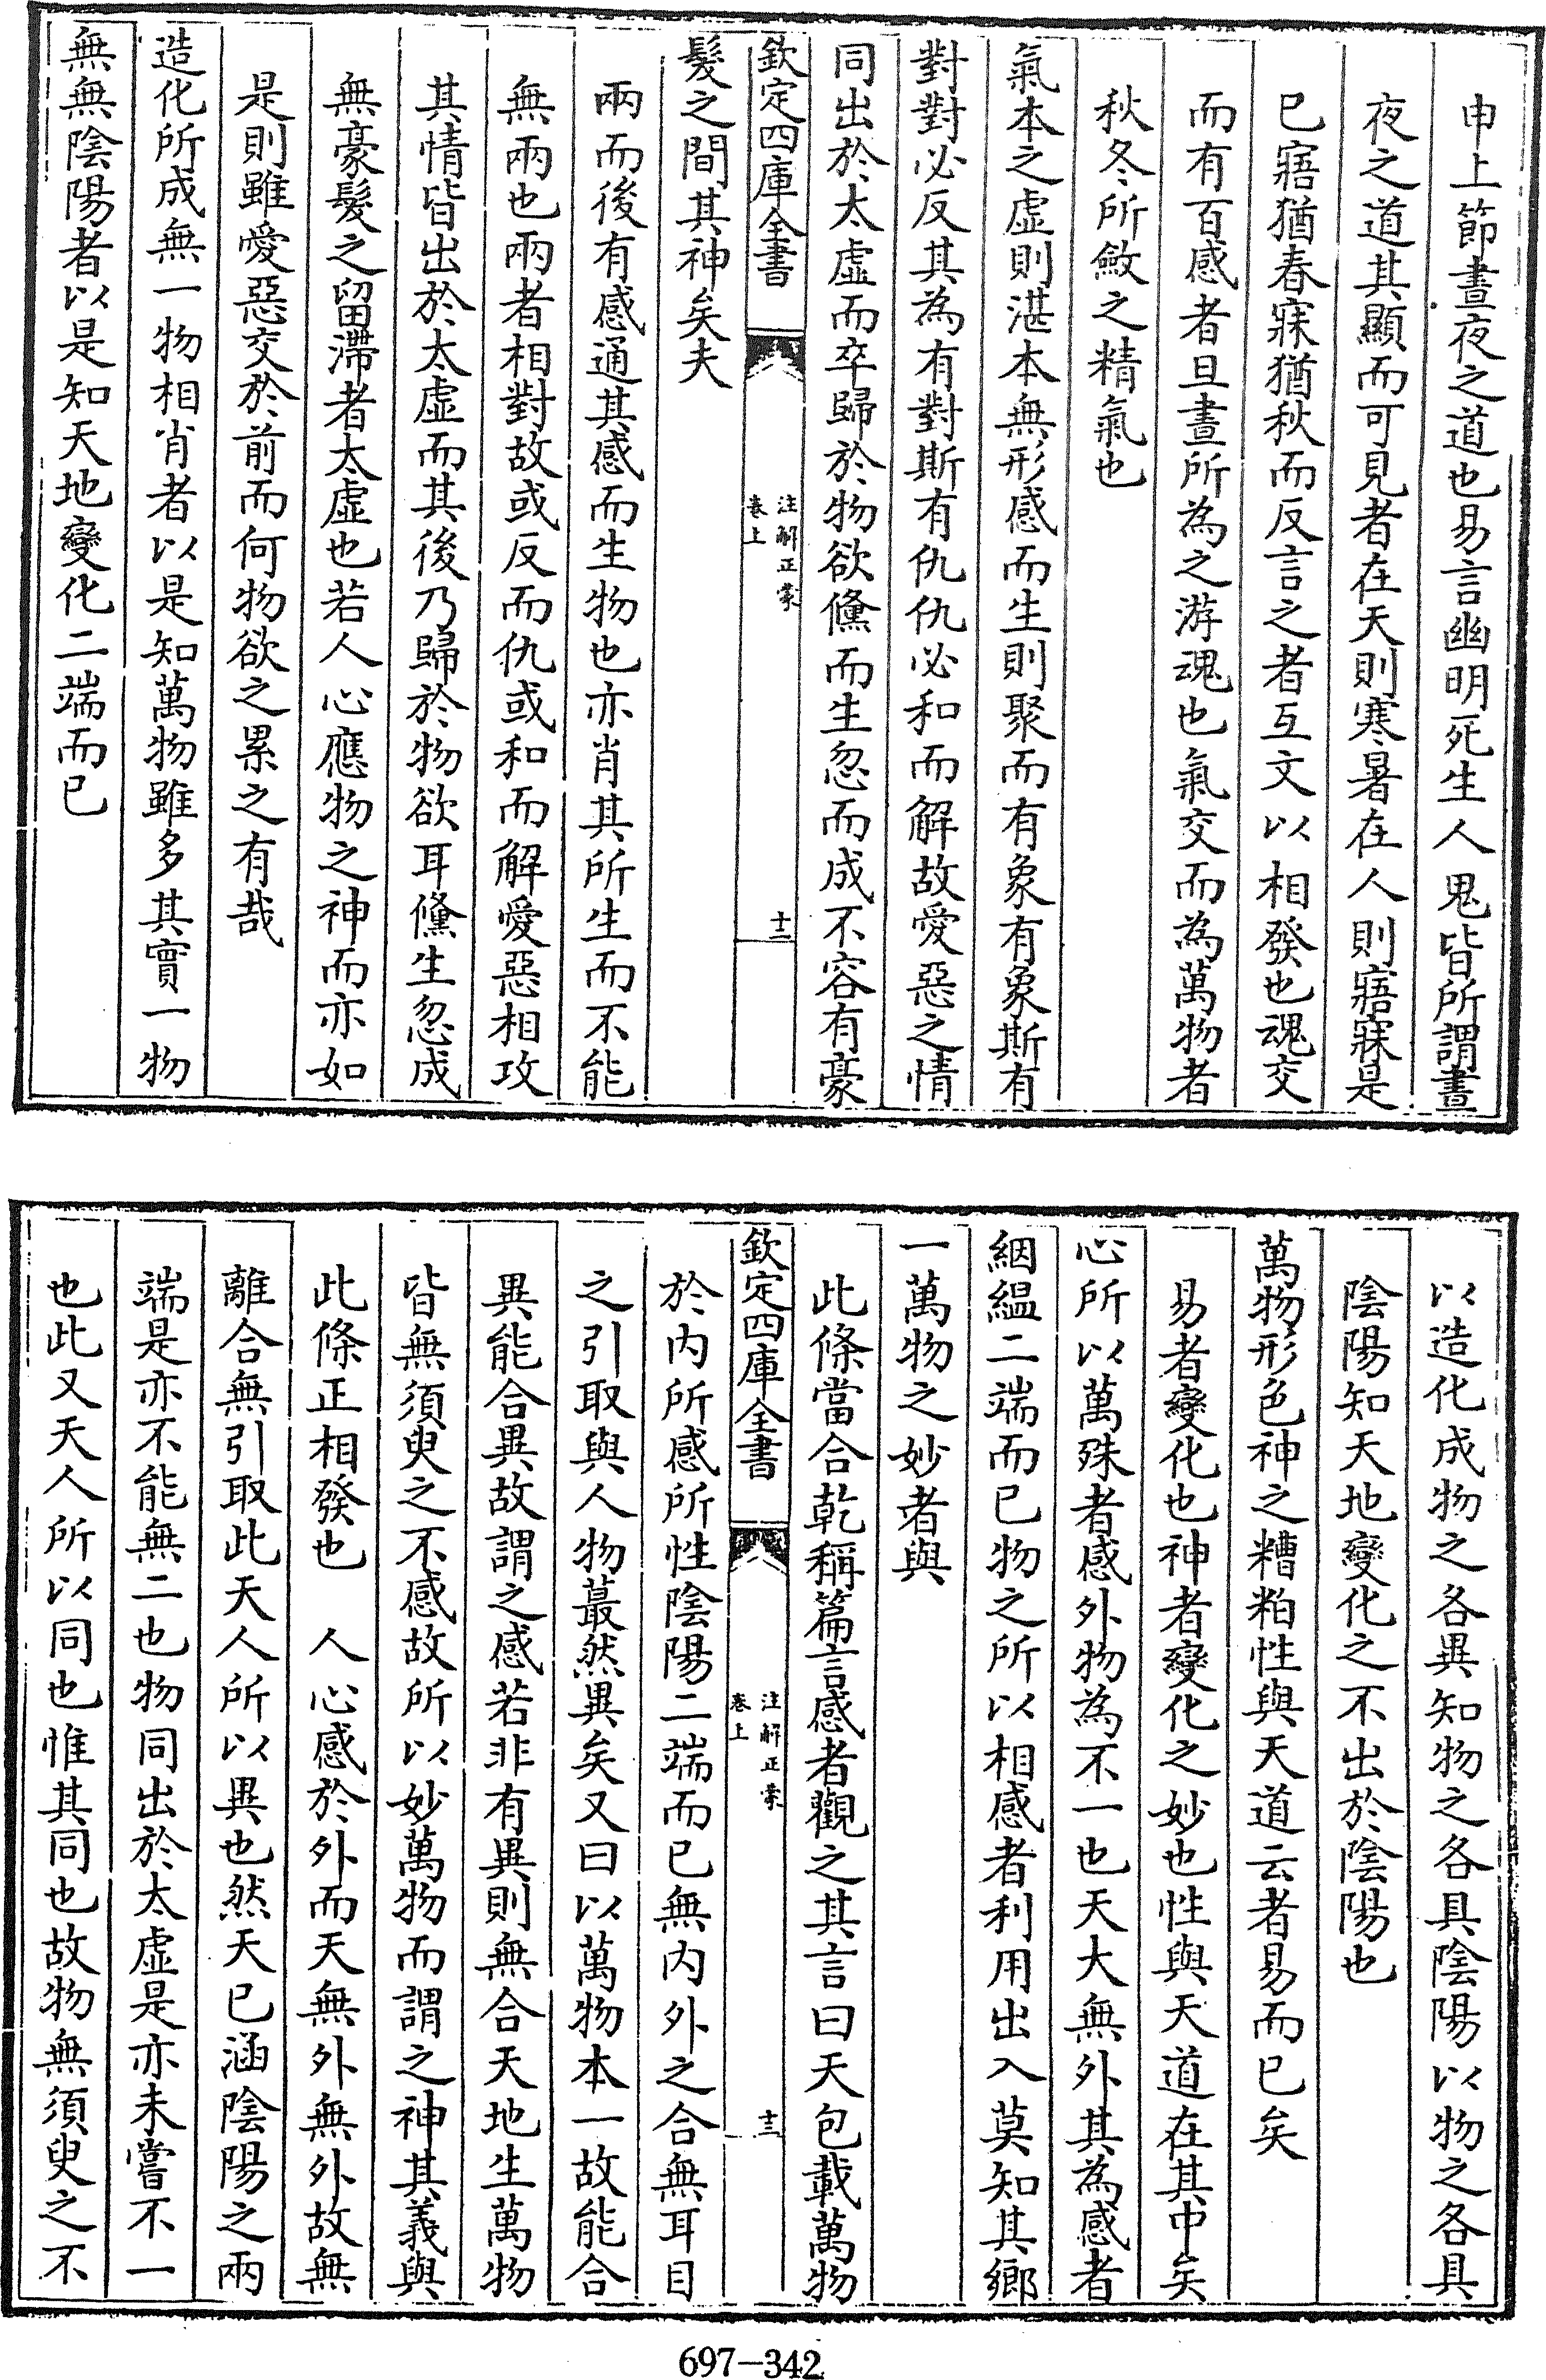 申上節晝夜之道也易言幽明死生人鬼皆所謂晝
夜之道其顯而可見者在天則寒暑在人則寤寐是
已寤猶春寐猶秋而反言之者互文以相發也魂交
而有百感者旦晝所為之游魂也氣交而為萬物者
秋冬所斂之精氣也
氣本之虛則湛本無形感而生則聚而有象有象斯有
對對必反其為有對斯有仇仇必和而解故愛惡之情
同出於太虛而卒歸於物欲儵而生忽而成不容有豪
欽定四庫全書
注解正蒙
卷上
十二
髮之間其神矣夫
兩而後有感通其感而生物也亦肖其所生而不能
無兩也兩者相對故或反而仇或和而解愛惡相攻
其情皆出於太虛而其後乃歸於物欲耳儵生忽成
無豪髮之留滯者太虛也若人心應物之神而亦如
是則雖愛惡交於前而何物欲之累之有哉
造化所成無一物相肖者以是知萬物雖多其實一物
無無陰陽者以是知天地變化二端而已
以造化成物之各異知物之各具陰陽以物之各具
陰陽知天地變化之不出於陰陽也
萬物形色神之糟粕性與天道云者易而已矣
易者變化也神者變化之妙也性與天道在其中矣
心所以萬殊者感外物為不一也天大無外其為感者
絪縕二端而已物之所以相感者利用出入莫知其鄉
一萬物之妙者與
此條當合乾稱篇言感者觀之其言曰天包載萬物
欽定四庫全書
注解正蒙
卷上
十三
於內所感所性陰陽二端而已無內外之合無耳目
之引取與人物蕞然異矣又曰以萬物本一故能合
異能合異故謂之感若非有異則無合天地生萬物
皆無須臾之不感故所以妙萬物而謂之神其義與
此條正相發也　人心感於外而天無外無外故無
離合無引取此天人所以異也然天已涵陰陽之兩
端是亦不能無二也物同出於太虛是亦未嘗不一
也此又天人所以同也惟其同也故物無須臾之不
697-342